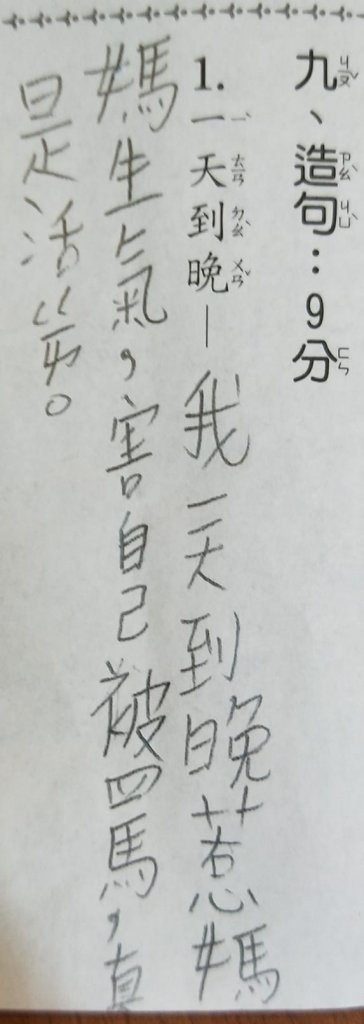 九、造句：9分
1.一天到晚—我一天到晚惹媽
媽生氣，害自己被罵，真
是活ㄍㄞ。